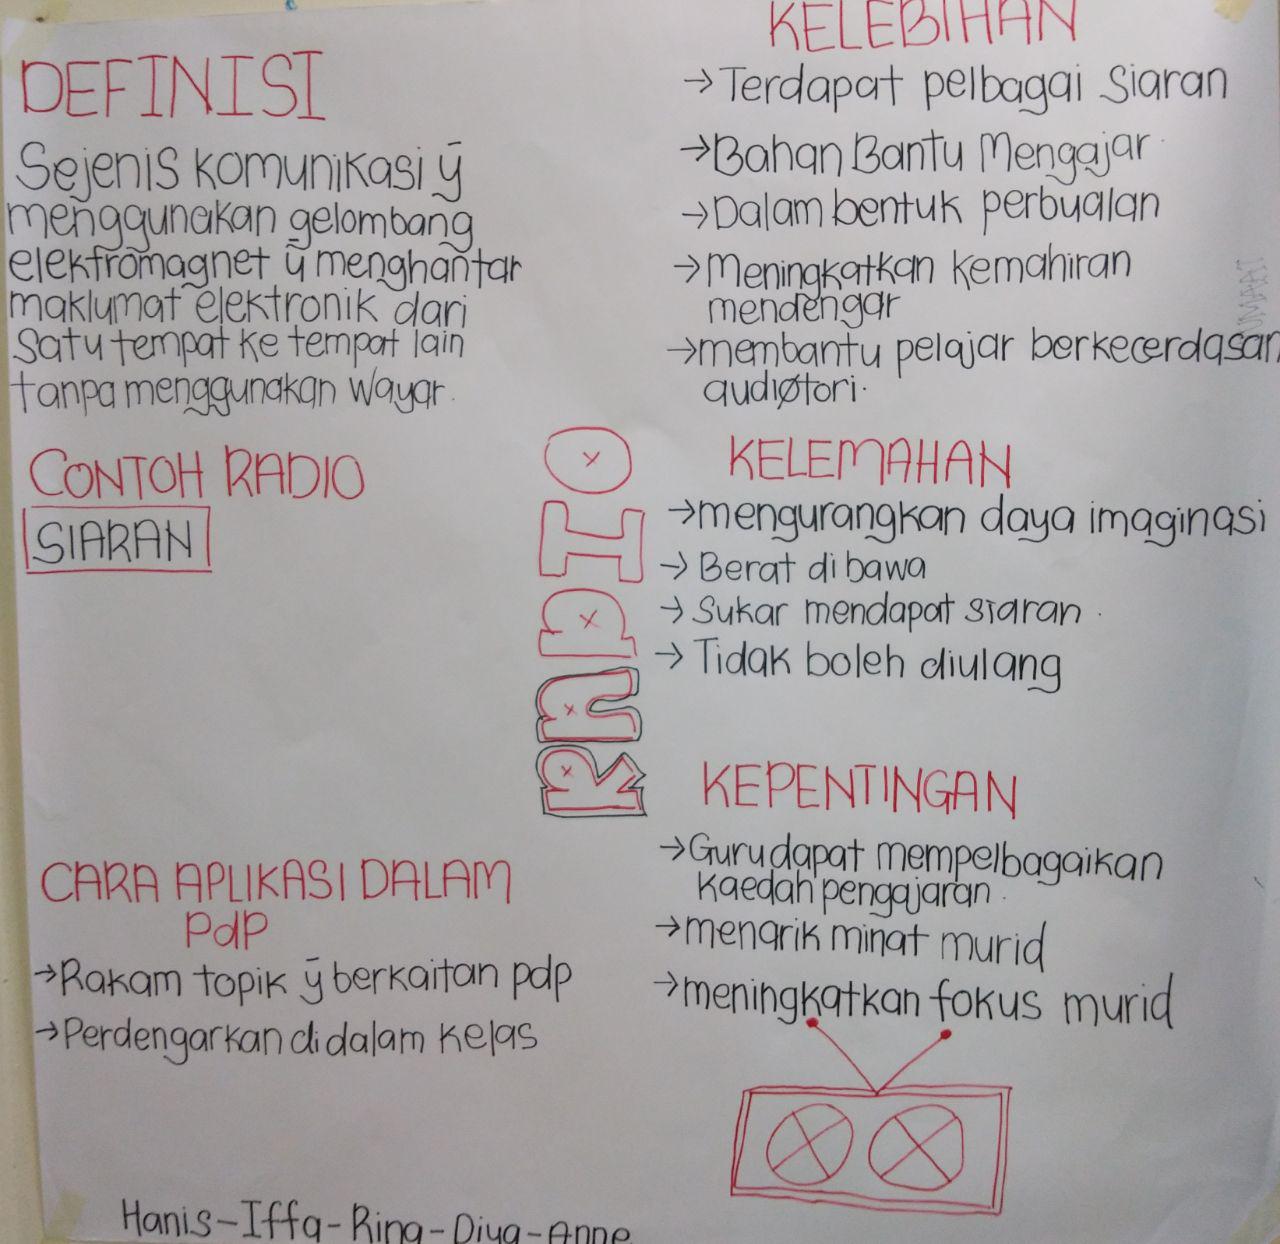 DEFINISI
Sejenis komunikasi ȳ
menggunakan gelombang
elektromagnet ȳ menghantar
maklumat elektronik dari
satu tempat ke tempat lain
tanpa menggunakan wayar.
CONTOH RADIO
SIARAN
CARA APLIKASI DALAM
PdP
→Rakam topik ȳ berkaitan pdp
→Perdengarkan di dalam kelas
RADIO
KELEBIHAN
→Terdapat pelbagai siaran
→Bahan Bantu Mengajar.
→Dalam bentuk perbualan
→Meningkatkan kemahiran
mendengar
→membantu pelajar berkecerdasan
audiotori.
KELEMAHAN
→mengurangkan daya imaginasi
→Berat dibawa
→Sukar mendapat siaran.
→Tidak boleh diulang
KEPENTINGAN
→Guru dapat mempelbagaikan
kaedah pengajaran.
→menarik minat murid
→meningkatkan fokus murid
Hanis-Iffa-Rina-Diya-Anne